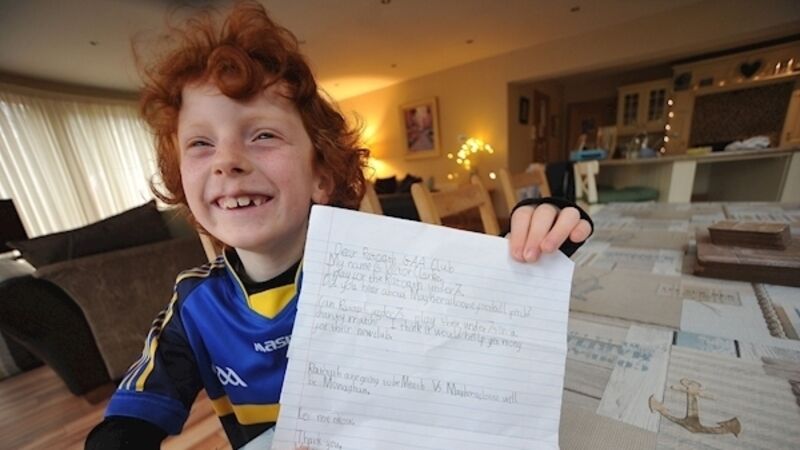 Dear Ratoath GAA Club
My name is
I play for the Ratoath under 7.
Did you hear about Magheracloone football pitch?
Can Ratoath under 7s play their under 7s in a
charity match? I think it would help get money
for their new club.
Ratoath are going to be Meath Vs Magheracloone will
be Monaghan.
Let me know.
Thank you.
GAA